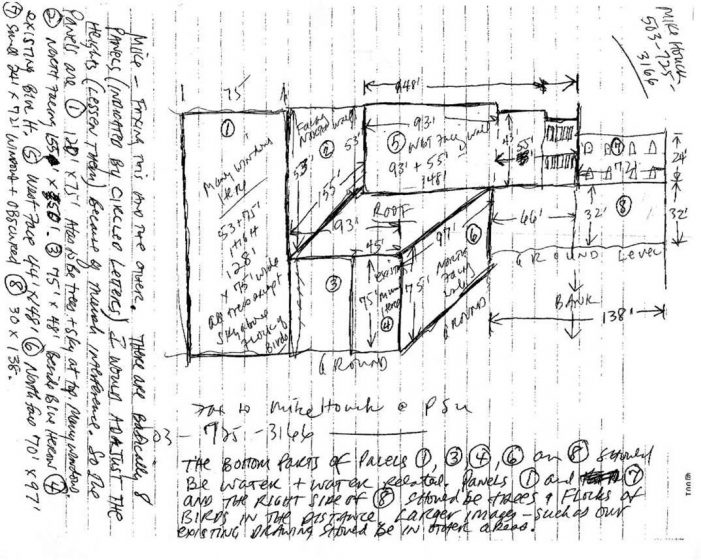 Mike Houck
503-725-
3166
Mike - Faxing this and one other. There are basically 8
Panels (indicated by circled letters) I would adjust the
Heights (lessen them) because of mural interference. So the
Panels are ① 128' x 75' Also be trees + sky at top. Many windows
② North facing 155' x ③ 75 x 48' Beside Blue Heron ④
existing Blue H. ⑤ West face 44' x 148' ⑥ North face 70' x 97'
⑦ Small 24' x 72' windows + obscured ⑧ 30 x 138'
75'
148'
①
Many windows
Here
53 + 75'
128'
x 75' wide
all trees except
sky above
flocks of
Birds
Facing
North wall
②
53'
53'
155'
93'
⑤ West face wall
93' + 55'
148'
45'
55'
⑦
72'
24'
⑧
32'
32'
ROOF
93'
45'
97'
46'
③
existing
75' mural
④
75'
North
facing
wall
⑥
GROUND LEVEL
BANK
138'
GROUND
GROUND
Fax to Mike Houck @ PSU
03-725-3166
THE BOTTOM PARTS OF PANELS ①, ③ ④, ⑥ and ⑧ should
BE WATER + WATER RELATED. PANELS ① and ⑦
AND THE RIGHT SIDE OF ⑧ should be TREES & FLOCKS OF
BIRDS IN THE DISTANCE LARGER images - such as our
existing DRAWING should be in other areas.